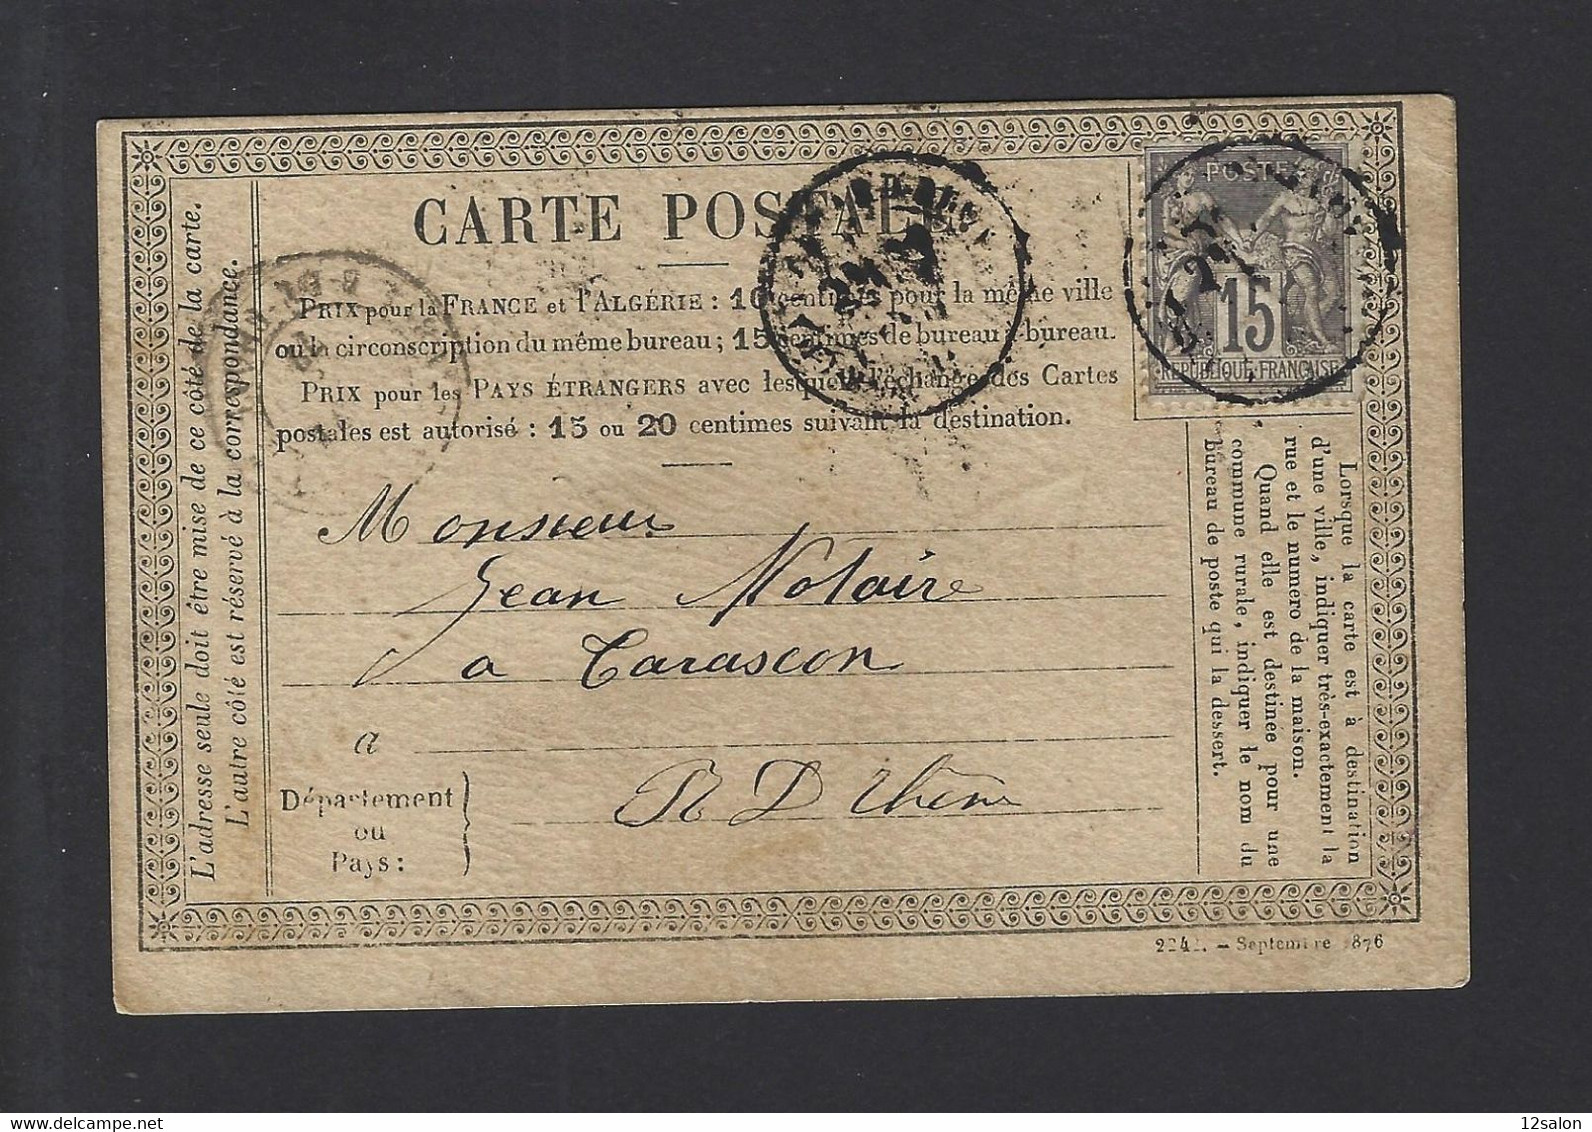 CARTE POSTALE
PRIX pour la FRANCE et l'ALGÉRIE : 10 centimes pour la même ville
ou la circonscription du même bureau ; 15 centimes de bureau à bureau.
PRIX pour les PAYS ÉTRANGERS avec lesquels l'échange des Cartes
postales est autorisé : 15 ou 20 centimes suivant la destination.
POSTE
15
REPUBLIQUE FRANCAISE
L'adresse seule doit être mise de ce côté de la carte.
L'autre côté est réservé à la correspondance.
Monsieur
Jean Notaire
a Tarascon
à
Département
ou
Pays :
Lorsque la carte est à destination
d'une ville, indiquer très-exactement la
rue et le numéro de la maison.
Quand elle est destinée pour une
commune rurale, indiquer le nom du
bureau de poste qui la dessert.
Septembre 1876
12salon